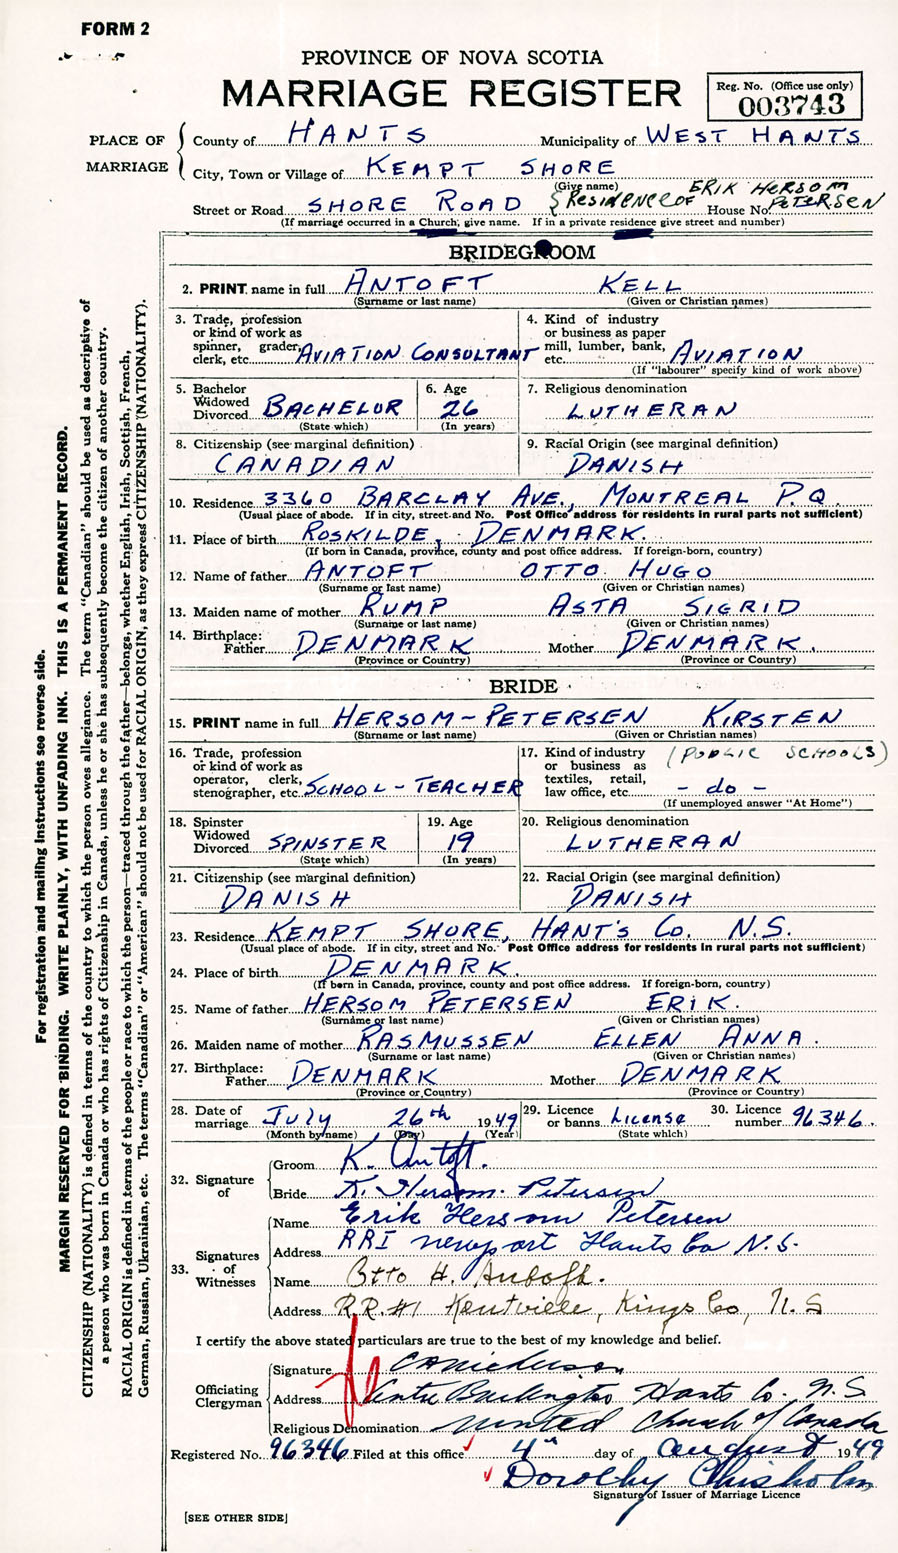 FORM 2
PROVINCE OF NOVA SCOTIA
MARRIAGE REGISTER
Reg. No. (Office use only)
003743
PLACE OF MARRIAGE
County of HANTS Municipality of WEST HANTS
City, Town or Village of KEMPT SHORE
(Give name)
Street or Road SHORE ROAD { RESIDENCE OF ERIK HERSOM PETERSEN House No.
(If marriage occurred in a Church, give name. If in a private residence give street and number)
BRIDEGROOM
2. PRINT name in full ANTOFT KELL
(Surname or last name) (Given or Christian names)
3. Trade, profession or kind of work as spinner, grader, clerk, etc. AVIATION CONSULTANT
4. Kind of industry or business as paper mill, lumber, bank, etc. AVIATION
(If "labourer" specify kind of work above)
5. Bachelor Widowed Divorced BACHELOR
(State which)
6. Age 26
(In years)
7. Religious denomination
LUTHERAN
8. Citizenship (see marginal definition)
CANADIAN
9. Racial Origin (see marginal definition)
DANISH
10. Residence 3360 BARCLAY AVE., MONTREAL P.Q.
(Usual place of abode. If in city, street and No. Post Office address for residents in rural parts not sufficient)
11. Place of birth ROSKILDE, DENMARK.
(If born in Canada, province, county and post office address. If foreign-born, country)
12. Name of father ANTOFT OTTO HUGO
(Surname or last name) (Given or Christian names)
13. Maiden name of mother RUMP ASTA SIGRID
(Surname or last name) (Given or Christian names)
14. Birthplace: Father DENMARK Mother DENMARK.
(Province or Country) (Province or Country)
BRIDE
15. PRINT name in full HERSOM-PETERSEN KIRSTEN
(Surname or last name) (Given or Christian names)
16. Trade, profession or kind of work as operator, clerk, stenographer, etc. SCHOOL-TEACHER
17. Kind of industry or business as textiles, retail, law office, etc. (PUBLIC SCHOOLS) - do -
(If unemployed answer "At Home")
18. Spinster Widowed Divorced SPINSTER
(State which)
19. Age 19
(In years)
20. Religious denomination
LUTHERAN
21. Citizenship (see marginal definition)
DANISH
22. Racial Origin (see marginal definition)
DANISH
23. Residence KEMPT SHORE, HANT'S CO. N.S.
(Usual place of abode. If in city, street and No. Post Office address for residents in rural parts not sufficient)
24. Place of birth DENMARK.
(If born in Canada, province, county and post office address. If foreign-born, country)
25. Name of father HERSOM PETERSEN ERIK.
(Surname or last name) (Given or Christian names)
26. Maiden name of mother RASMUSSEN ELLEN ANNA.
(Surname or last name) (Given or Christian names)
27. Birthplace: Father DENMARK Mother DENMARK
(Province or Country) (Province or Country)
28. Date of marriage July 26th 1949
(Month by name) (Day) (Year)
29. Licence or banns License
(State which)
30. Licence number 96346.
32. Signature of
Groom K. Antoft.
Bride K. Hersom-Petersen
33. Signatures of Witnesses
Name Erik Hersom Petersen
Address RR1 Newport Hants Co N.S.
Name Otto H. Antoft.
Address R.R.#1 Kentville, Kings Co, N.S
I certify the above stated particulars are true to the best of my knowledge and belief.
Officiating Clergyman
Signature
Address Burlington Hants Co. N.S.
Religious Denomination United Church of Canada
Registered No. 96346 Filed at this office 4th day of August 1949
Dorothy Chisholm
Signature of Issuer of Marriage Licence
[SEE OTHER SIDE]
For registration and mailing instructions see reverse side.
MARGIN RESERVED FOR BINDING. WRITE PLAINLY, WITH UNFADING INK. THIS IS A PERMANENT RECORD.
CITIZENSHIP (NATIONALITY) is defined in terms of the country to which the person owes allegiance. The term "Canadian" should be used as descriptive of
a person who was born in Canada or who has rights of Citizenship in Canada, unless he or she has subsequently become the citizen of another country.
RACIAL ORIGIN is defined in terms of the people or race to which the person—traced through the father—belongs, whether English, Irish, Scottish, French,
German, Russian, Ukrainian, etc. The terms "Canadian" or "American" should not be used for RACIAL ORIGIN, as they express CITIZENSHIP (NATIONALITY).